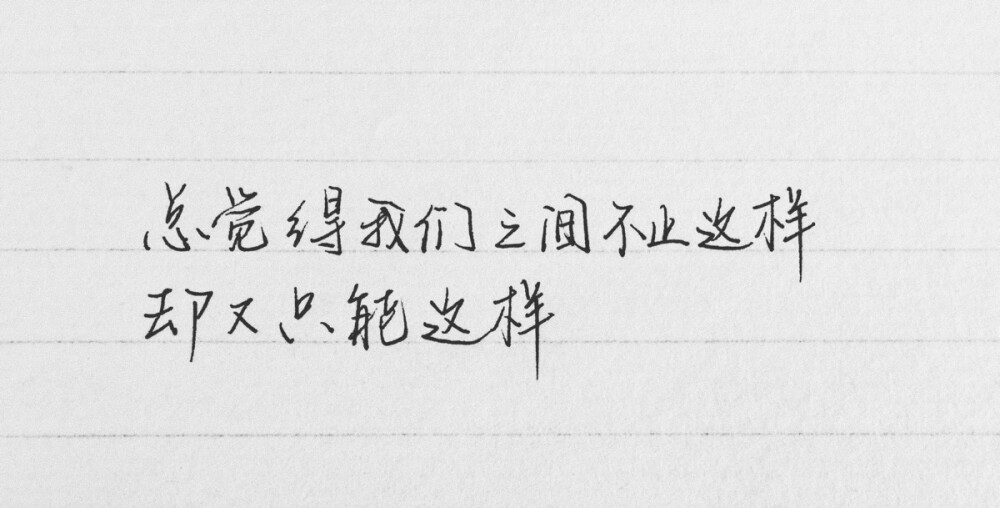 总觉得我们之间不止这样
却又只能这样